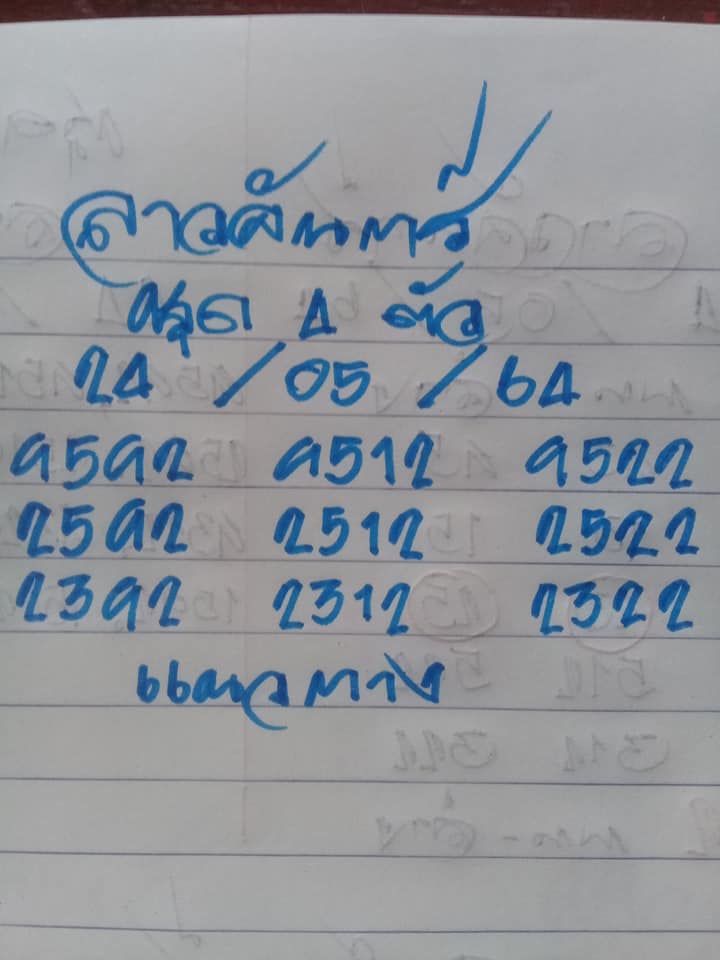 ลาวจันทร์
ชุด 4 ตัว
24 / 05 / 64
9592 9512 9522
2592 2512 2522
2392 2312 2322
แนวทาง